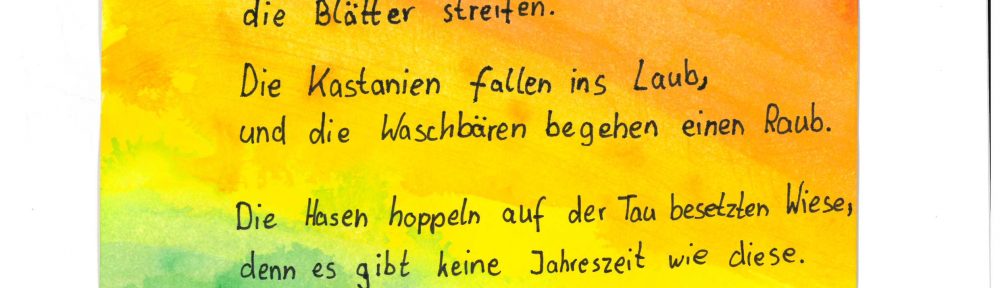 die Blätter streifen.
Die Kastanien fallen ins Laub,
und die Waschbären begehen einen Raub.
Die Hasen hoppeln auf der Tau besetzten Wiese,
denn es gibt keine Jahreszeit wie diese.